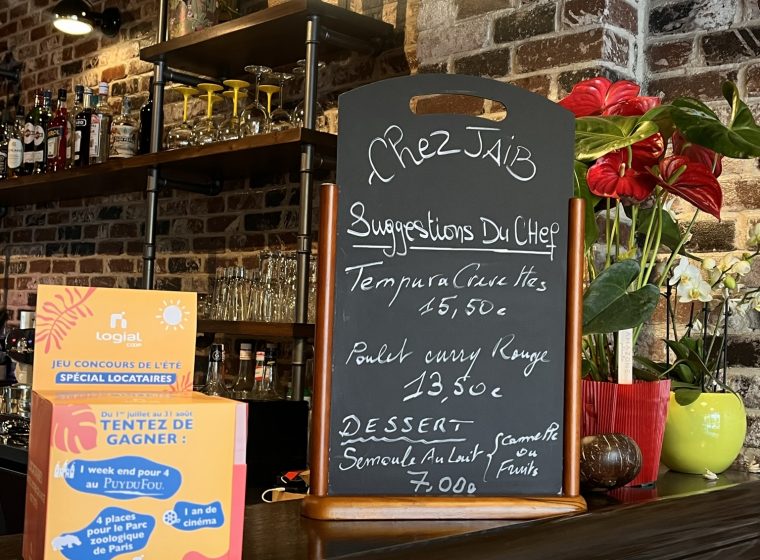 Chez JAiB
Suggestions Du CHef
Tempura Crevettes
15,50€
Poulet curry Rouge
13,50€
DESSERT
Semoule Au Lait { Cannelle
ou
Fruits
7,00€
logial
COOP
JEU CONCOURS DE L'ÉTÉ
SPÉCIAL LOCATAIRES
Du 1er juillet au 31 août
TENTEZ DE
GAGNER :
1 week end pour 4
au PUYDUFOU.
1 an de
cinéma
4 places
pour le Parc
zoologique
de Paris